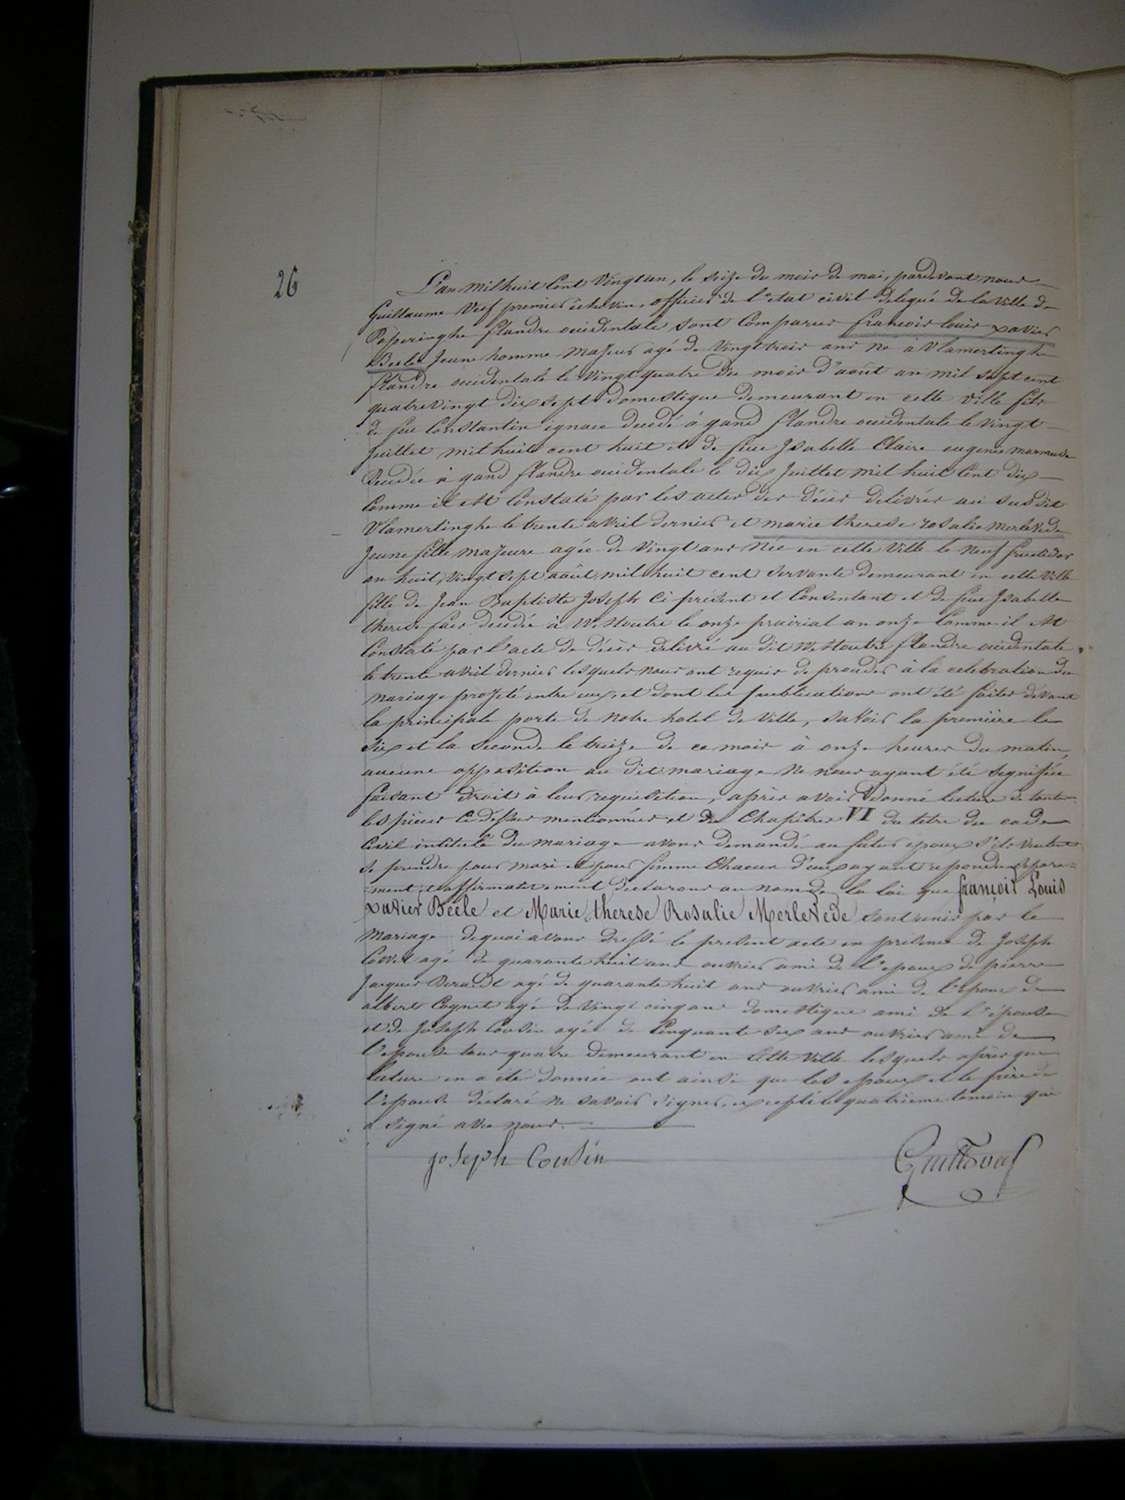 26
L'an mil huit cent Vingt un, le seize du mois de mai, pardevant nous
Guillaume Vref premier échevin, officier de l'etat civil delegué de la Ville de
Poperinghe flandre occidentale sont comparus françois louis xavier
Beele Jeune homme majeur agé de Vingt trois ans né à Vlamertinghe
flandre occidentale le Vingt quatre du mois d'août an mil sept cent
quatre vingt dix sept domestique demeurant en cette ville fils
de feu Constantin ignace decedé à gand flandre occidentale le vingt
juillet mil huit cent huit et de feue Isabelle Claire eugenie
Decedée à gand flandre occidentale le dix Juillet mil huit Cent dix
Comme il est Constaté par les actes de décès délivrés au susdit
Vlamertinghe le trente avril dernier et marie therese rosalie merlevede
Jeune fille majeure agée de Vingt ans Née en cette Ville le neuf fructidor
an huit, Vingt sept août mil huit cent servante demeurant en cette Ville
fille de Jean Baptiste Joseph Ci present et Consentant et de feue Isabelle
therese decedée à W. Houtre le onze prairial an onze Comme il est
Constaté par l'acte de décès delivré au dit W. Houtre flandre occidentale
le trente avril dernier lesquels nous ont requis de proceder à la celebration du
mariage projeté entre eux, et dont les publications ont été faites devant
la principale porte de notre hotel de Ville, savoir la première le
six et la seconde le treize de ce mois à onze heures du matin,
aucune opposition au dit mariage ne nous ayant été signifiée
faisant droit à leur requisition, après avoir donné lecture de toutes
les pieces ci dessus mentionnées et du Chapitre VI du titre du code
Civil intitulé du mariage avons demandé au futur époux s'ils veulent
se prendre pour mari et pour femme Chacun d'eux ayant repondu separe-
-ment et affirmativement declarons au nom de la loi que françois Louis
xavier Beele et Marie, therese Rosalie Merlevede sont unis par le
Mariage de quoi avons dressé le present acte en présence de Joseph
agé de quarante huit ans ouvrier ami de l'epoux de pierre
Jacques agé de quarante huit ans ouvrier ami de l'epoux de
albert Cognet agé de Vingt cinq ans domestique ami de l'épouse
et de Joseph Cousin agé de Cinquante six ans ouvrier ami de
l'epouse tous quatre demeurant en Cette Ville lesquels après que
lecture en a été donnée ont ainsi que les epoux et le père de
l'epouse declaré ne savoir signer, excepté le quatrieme temoin qui
a signé avec nous.
joseph Cousin